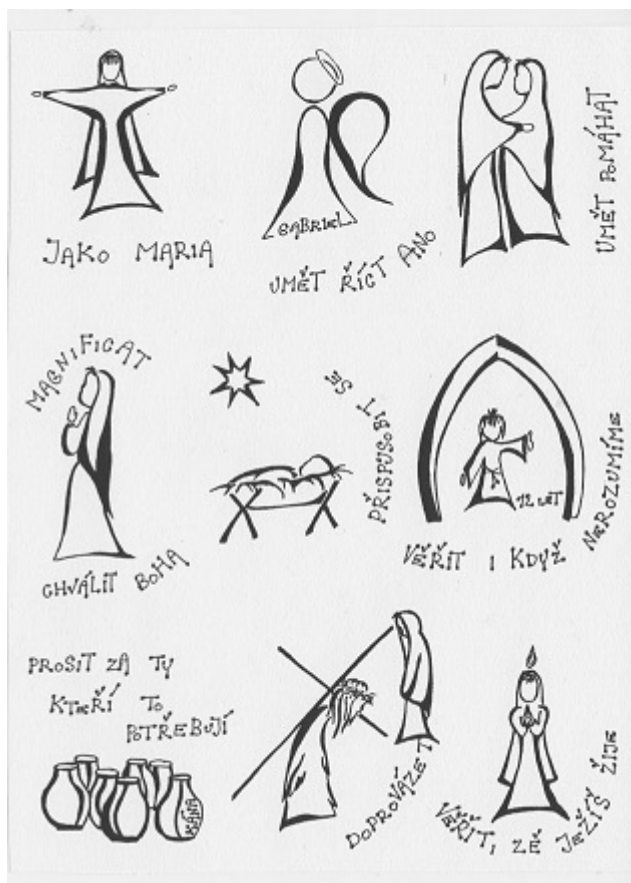 JAKO MARIA
GABRIEL
UMĚT ŘÍCT ANO
UMĚT POMÁHAT
MAGNIFICAT
CHVÁLIT BOHA
PŘISPŮSOBIT SE
12 LET
VĚŘIT I KDYŽ NEROZUMÍME
PROSIT ZA TY
KTEŘÍ TO
POTŘEBUJÍ
KÁNA
DOPROVÁZET
VĚŘIT, ŽE JEŽÍŠ ŽIJE